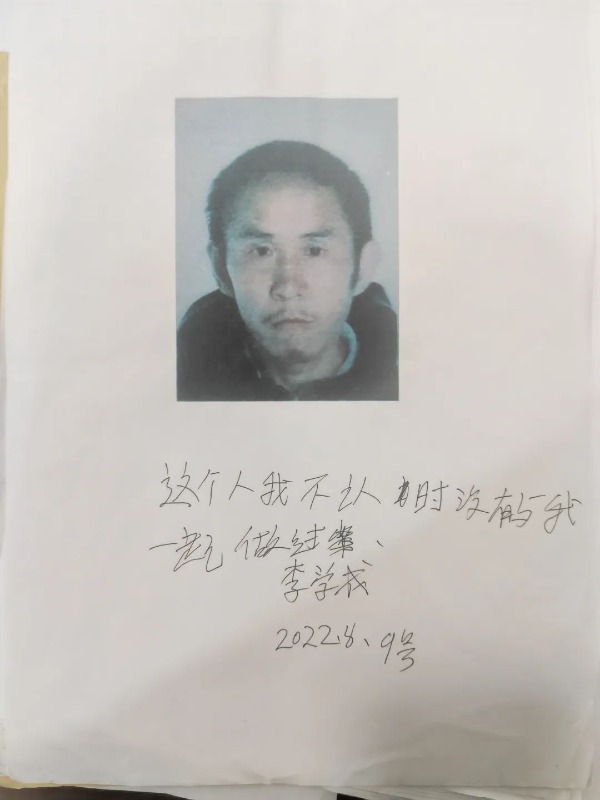 这个人我不认时没有与我
一起做过案、
李学成
2022.8、9号